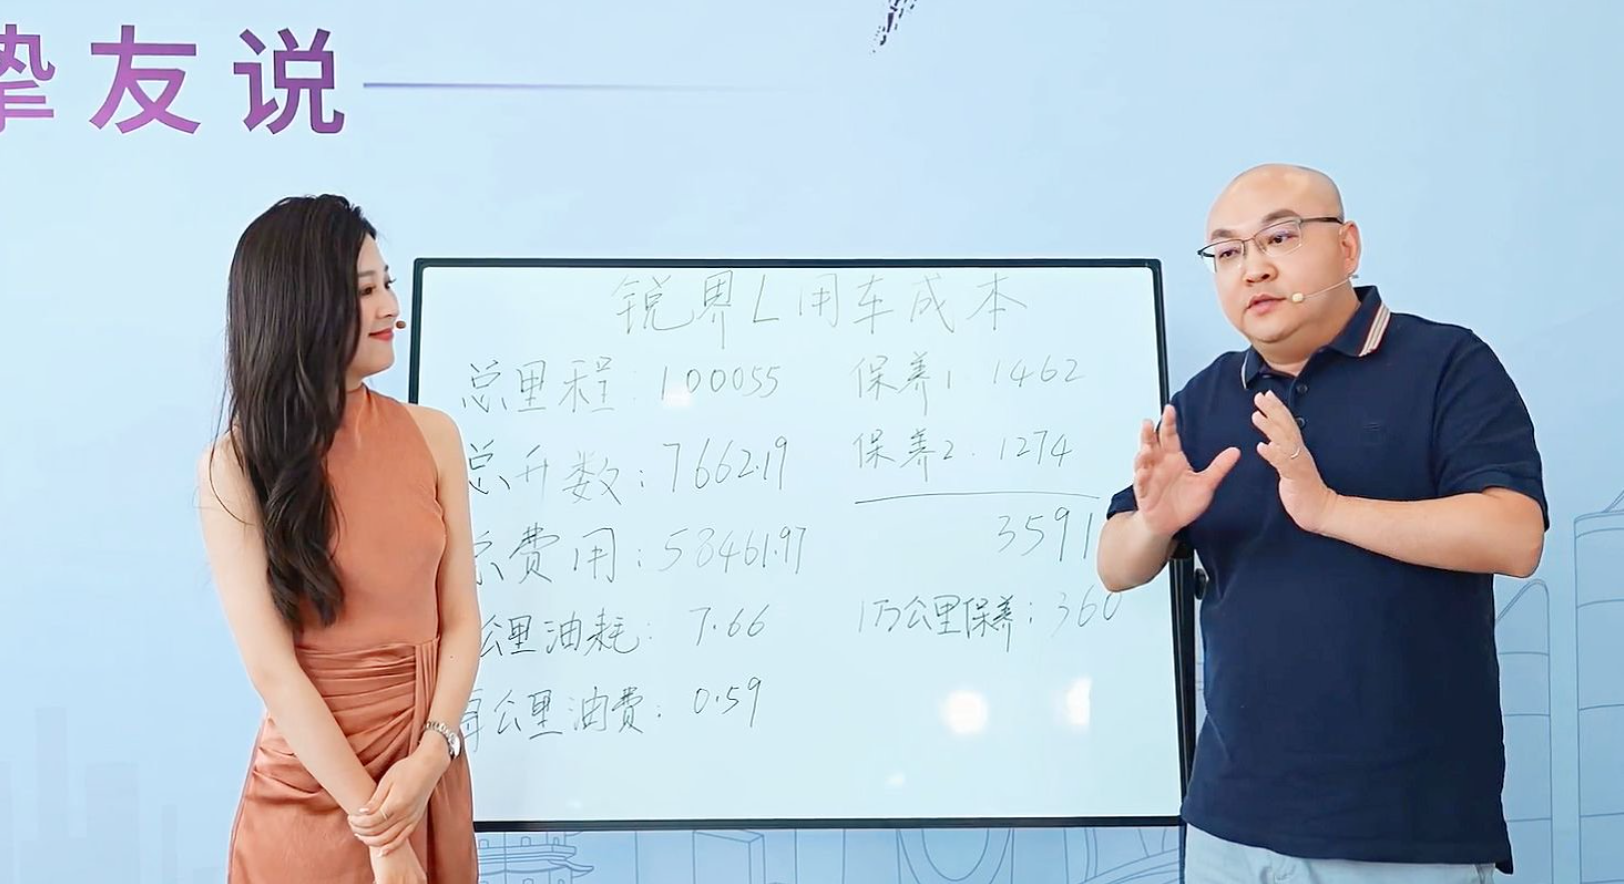 挚友说
锐界L用车成本
总里程：100055
总升数：7662.19
总费用：58461.97
公里油耗：7.66
每公里油费：0.59
保养1 1462
保养2. 1274
3591
1万公里保养：360